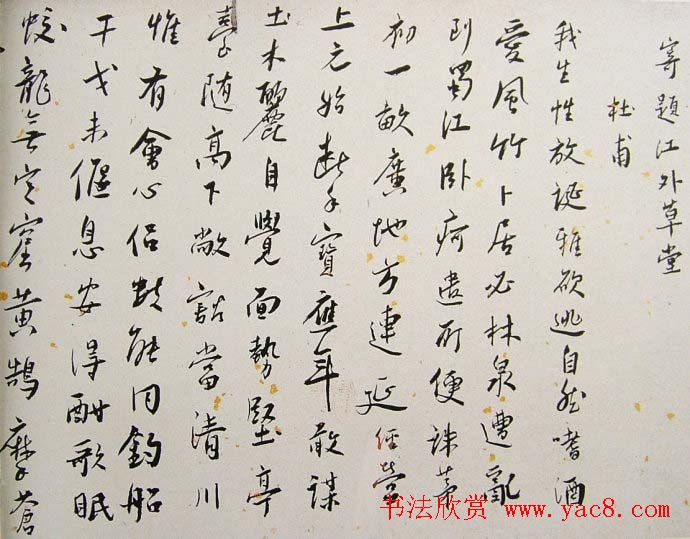 寄題江外草堂
杜甫
我生性放誕雅欲逃自然嗜酒
愛風竹卜居必林泉遭亂
到蜀江卧疴遣所便誅茅
初一畝廣地方連延經營
上元始斷手寶應年敢謀
土木麗自覺面勢堅亭
臺随高下敞豁當清川
惟有會心侣數能同釣船
干戈未偃息安得酣歌眠
蛟龍無定窟黄鵠摩蒼
书法欣赏 www.yac8.com